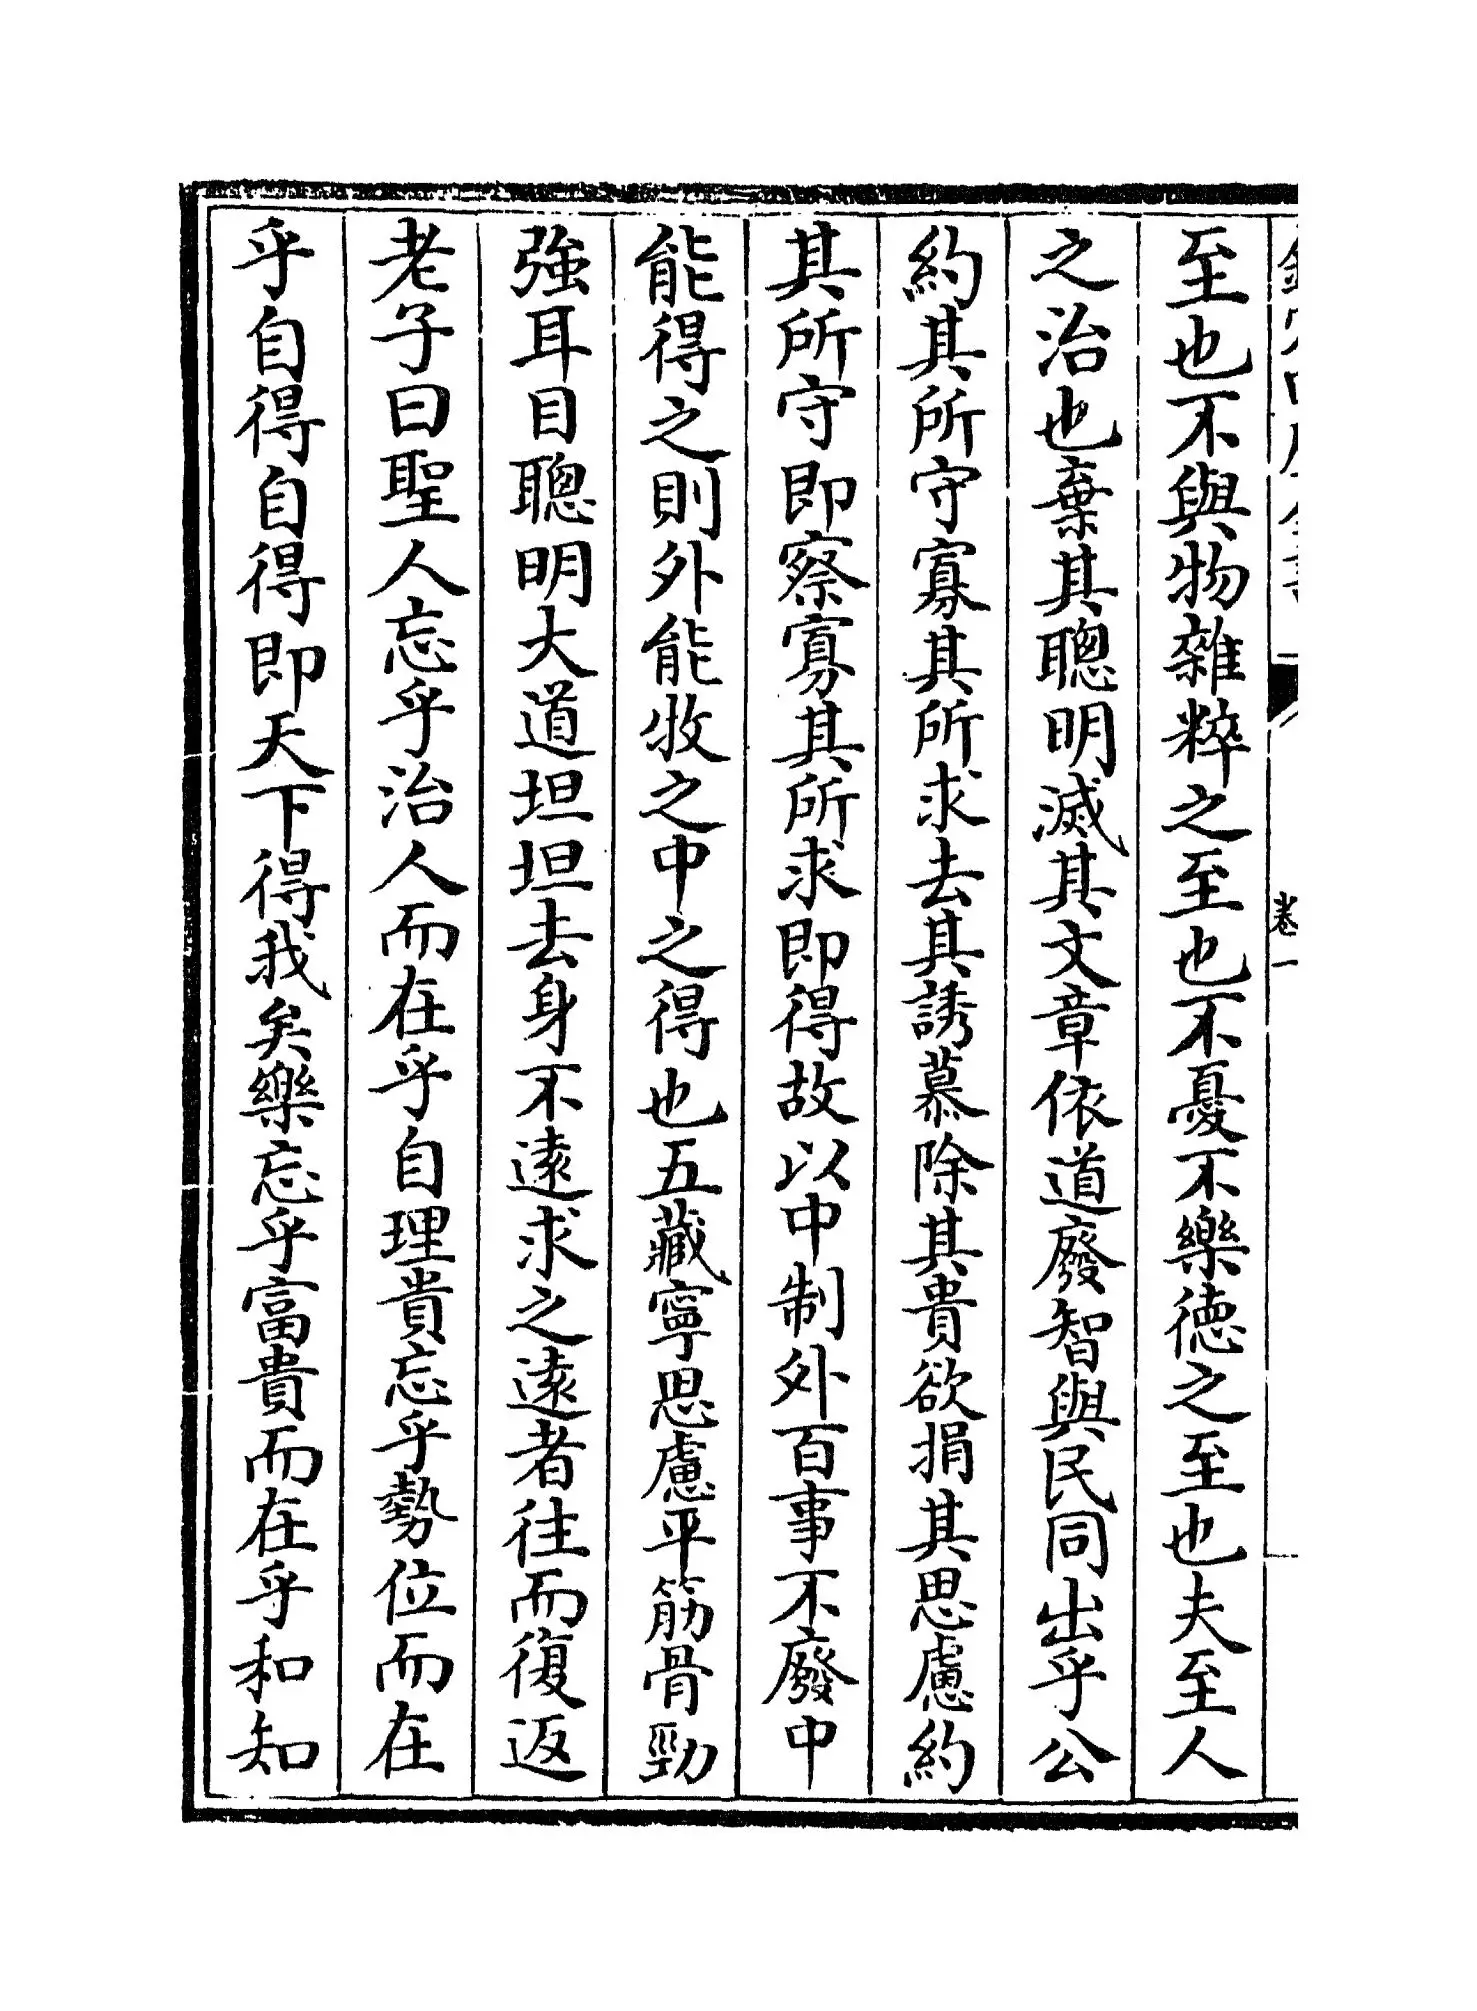 至也不與物雜粹之至也不憂不樂徳之至也夫至人
之治也棄其聰明滅其文章依道廢智與民同出乎公
約其所守寡其所求去其誘慕除其貴欲捐其思慮約
其所守即察寡其所求即得故以中制外百事不廢中
能得之則外能牧之中之得也五藏寧思慮平筋骨勁
強耳目聰明大道坦坦去身不遠求之遠者往而復返
老子曰聖人忘乎治人而在乎自理貴忘乎勢位而在
乎自得自得即天下得我矣樂忘乎富貴而在乎和知
卷一